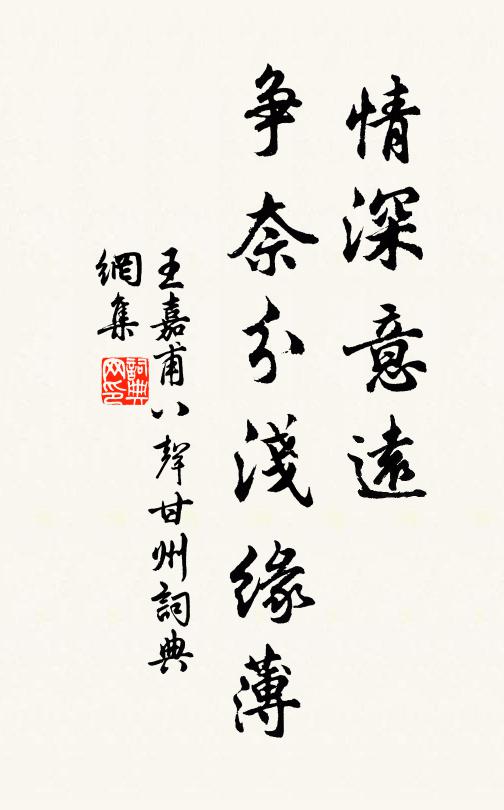 情深意遠
争奈分淺緣薄
王嘉甫八聲甘州詞典
網集
詞典
网印